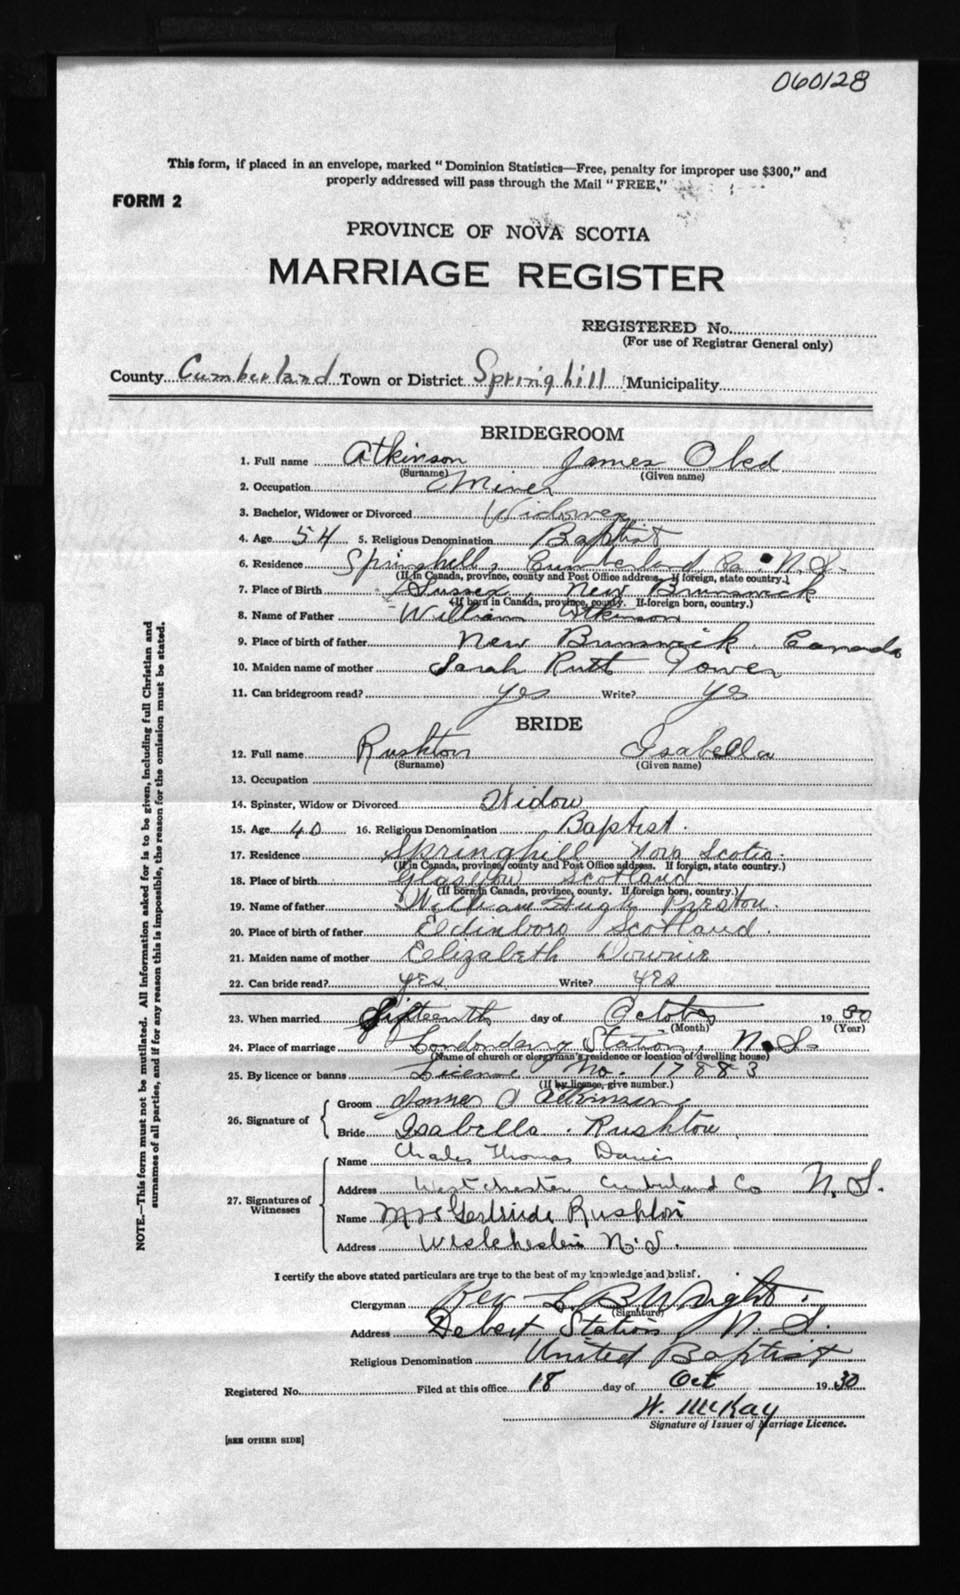 060128
This form, if placed in an envelope, marked "Dominion Statistics—Free, penalty for improper use $300," and
properly addressed will pass through the Mail "FREE."
FORM 2
PROVINCE OF NOVA SCOTIA
MARRIAGE REGISTER
REGISTERED No.
(For use of Registrar General only)
County Cumberland Town or District Springhill Municipality
BRIDEGROOM
1. Full name Atkinson James Obed
(Surname) (Given name)
2. Occupation Miner
3. Bachelor, Widower or Divorced Widower
4. Age 54 5. Religious Denomination Baptist
6. Residence Springhill, Cumberland Co. N.S.
(If in Canada, province, county and Post Office address. If foreign, state country.)
7. Place of Birth Sussex, New Brunswick
(If born in Canada, province, county. If foreign born, country.)
8. Name of Father William Atkinson
9. Place of birth of father New Brunswick. Canada
10. Maiden name of mother Sarah Ruth Tower
11. Can bridegroom read? yes Write? yes
BRIDE
12. Full name Rushton Isabella
(Surname) (Given name)
13. Occupation
14. Spinster, Widow or Divorced Widow
15. Age 40 16. Religious Denomination Baptist.
17. Residence Springhill Nova Scotia.
(If in Canada, province, county and Post Office address. If foreign, state country.)
18. Place of birth Glasgow Scotland.
(If born in Canada, province, county. If foreign born, country.)
19. Name of father William Hugh Preston.
20. Place of birth of father Edinboro Scotland.
21. Maiden name of mother Elizabeth Downie
22. Can bride read? yes Write? yes
23. When married Fifteenth day of October 1930
(Month) (Year)
24. Place of marriage Londonderry Station, N.S.
(Name of church or clergyman's residence or location of dwelling house)
25. By licence or banns License No. 17883
(If by licence, give number.)
26. Signature of
Groom James O Atkinson
Bride Isabella Rushton
27. Signatures of Witnesses
Name Charles Thomas Davis
Address Westchester Cumberland Co N.S.
Name Mrs Gertrude Rushton
Address Westchester N.S.
I certify the above stated particulars are true to the best of my knowledge and belief.
Clergyman Rev L. B Wright.
(Signature)
Address Debert Station N.S.
Religious Denomination United Baptist
Registered No. Filed at this office 18 day of Oct 1930
W. McKay
Signature of Issuer of Marriage Licence.
[SEE OTHER SIDE]
NOTE.—This form must not be mutilated. All information asked for is to be given, including full Christian and
surnames of all parties, and if for any reason this is impossible, the reason for the omission must be stated.